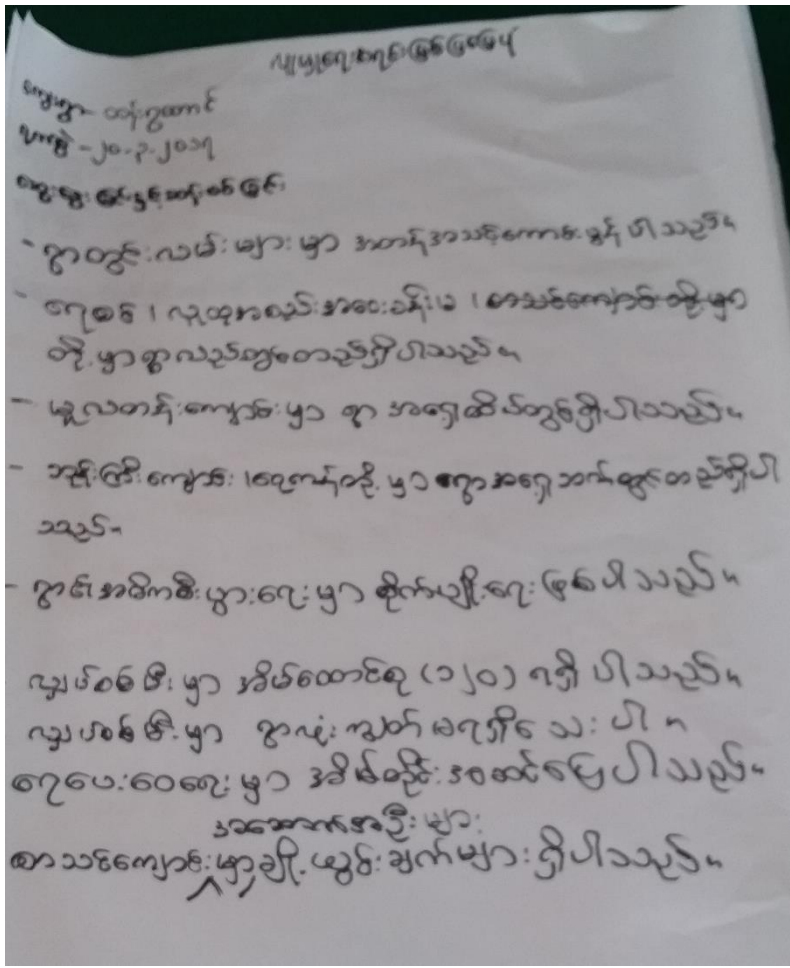 လူမှုရေးစာရင်းဖြစ်ပြခြေပုံ
ကျေးရွာ - ထန်းဂူထောင်
ကာစွဲ - ၂၀-၃-၂၀၁၇
ဆွေးနွေးခြင်းနှင့်ဆန်းစစ်ခြင်း
- ရွာတွင်းလမ်းများမှာ အတန်အသင့်ကောင်းမွန်ပါသည်။
- ရေစင်၊ လူထုအစည်းအဝေးခန်းမ၊ စာသင်ကျောင်းတို့မှာ
တို့မှာရွာလည်တွင်တည်ရှိပါသည်။
- မူလတန်းကျောင်းမှာ ရွာအရှေ့ထိပ်တွင်ရှိပါသည်။
- ဘုန်းကြီးကျောင်း၊ ရေကန်တို့မှာ ရွာအရှေ့ဘက်တွင်တည်ရှိပါ
သည်။
- ရွာ၏အဓိကစီးပွားရေးမှာ စိုက်ပျိုးရေးဖြစ်ပါသည်။
လျှပ်စစ်မီးမှာ အိမ်ထောင်စု (၁၂၀) ရရှိပါသည်။
လျှပ်စစ်မီးမှာ ရွာလုံးကျွတ်မရရှိသေးပါ။
ရေပေးဝေရေးမှာ အိမ်တိုင်းအဆင်ပြေပါသည်။
အဆောက်အဦးများ
စာသင်ကျောင်းမှာချို့ယွင်းချက်များရှိပါသည်။